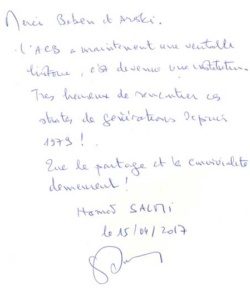 Merci Baben et Areski.
L'ACB a maintenant une veritable
histoire, c'est devenu une institution.
Tres heureux de rencontrer ces
strates de générations depuis
1979 !
Que le partage et la convivialité
demeurent !
Hamid SALMI
le 15/04/2017